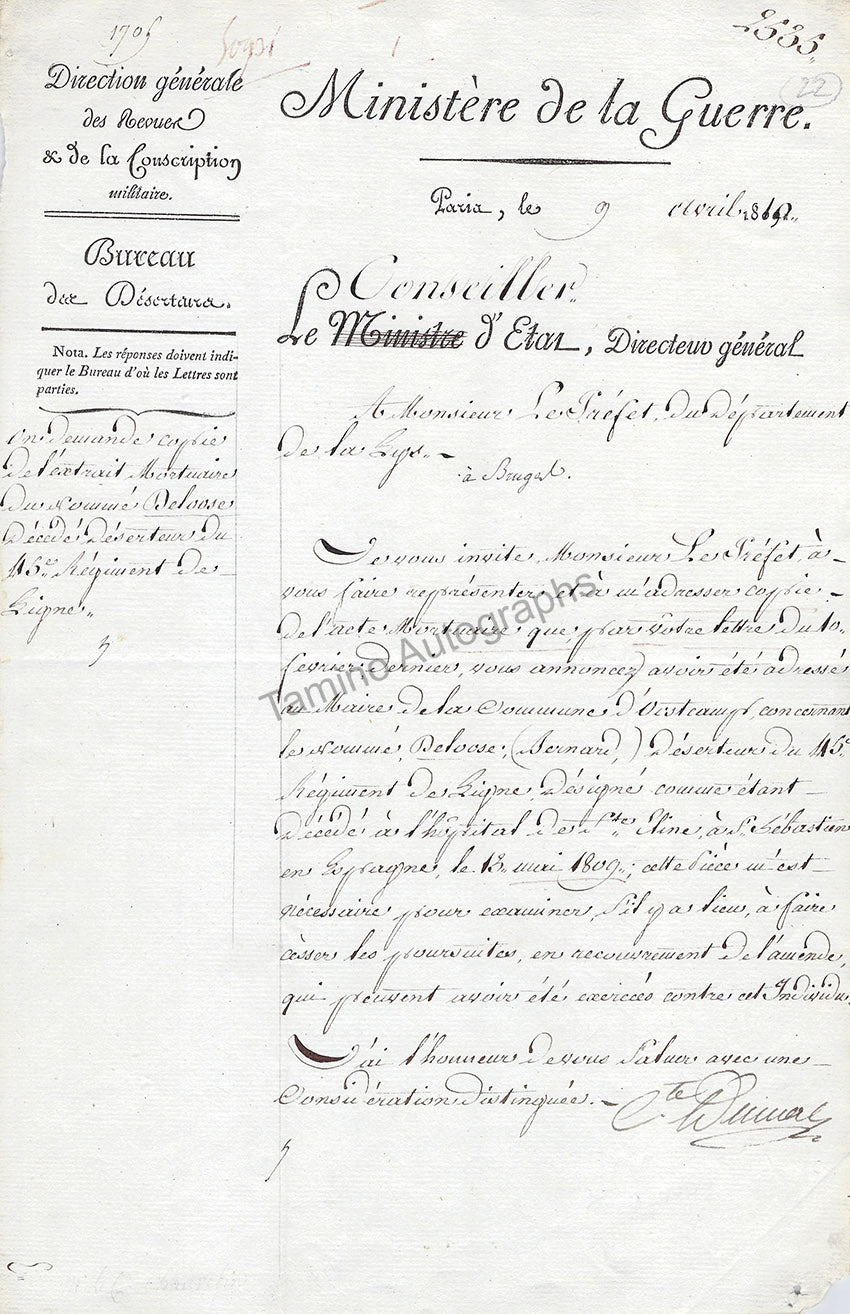 1705
2535.
22
Direction générale
des Revues
& de la Conscription
militaire.
Bureau
des Déserteurs.
Nota. Les réponses doivent indi-
quer le Bureau d'où les Lettres sont
parties.
On demande copie
de l'extrait Mortuaire
du nommé Deloose
décédé déserteur du
45e Régiment de
Ligne.
Ministère de la Guerre.
Paris, le 9 avril 1812.
Conseiller
Le Ministre d'Etat, Directeur général
A Monsieur Le Préfet, du département
de la Lys. -
à Bruges.
Je vous invite, Monsieur Le Préfet, à -
vous faire représenter et à m'adresser copie -
de l'acte Mortuaire que, par vôtre lettre du 10 -
février dernier, vous annoncez avoir été adressé
au Maire de la Commune d'Oostcamp, concernant
le nommé, Deloose, (Bernard,) déserteur du 45e
Régiment de Ligne, désigné comme étant -
décédé à l'hôpital de Ste Eline, à St. Sébastien
en Espagne, le 13 mai 1809.; cette Pièce m'est -
nécessaire pour examiner, s'il y a lieu, à faire
cèsser les poursuites, en recouvrement de l'amende,
qui peuvent avoir été exercées contre cet Individu.
J'ai l'honneur de vous saluer avec une -
Considération distinguée. -
Cte Dumas
Tamino Autographs